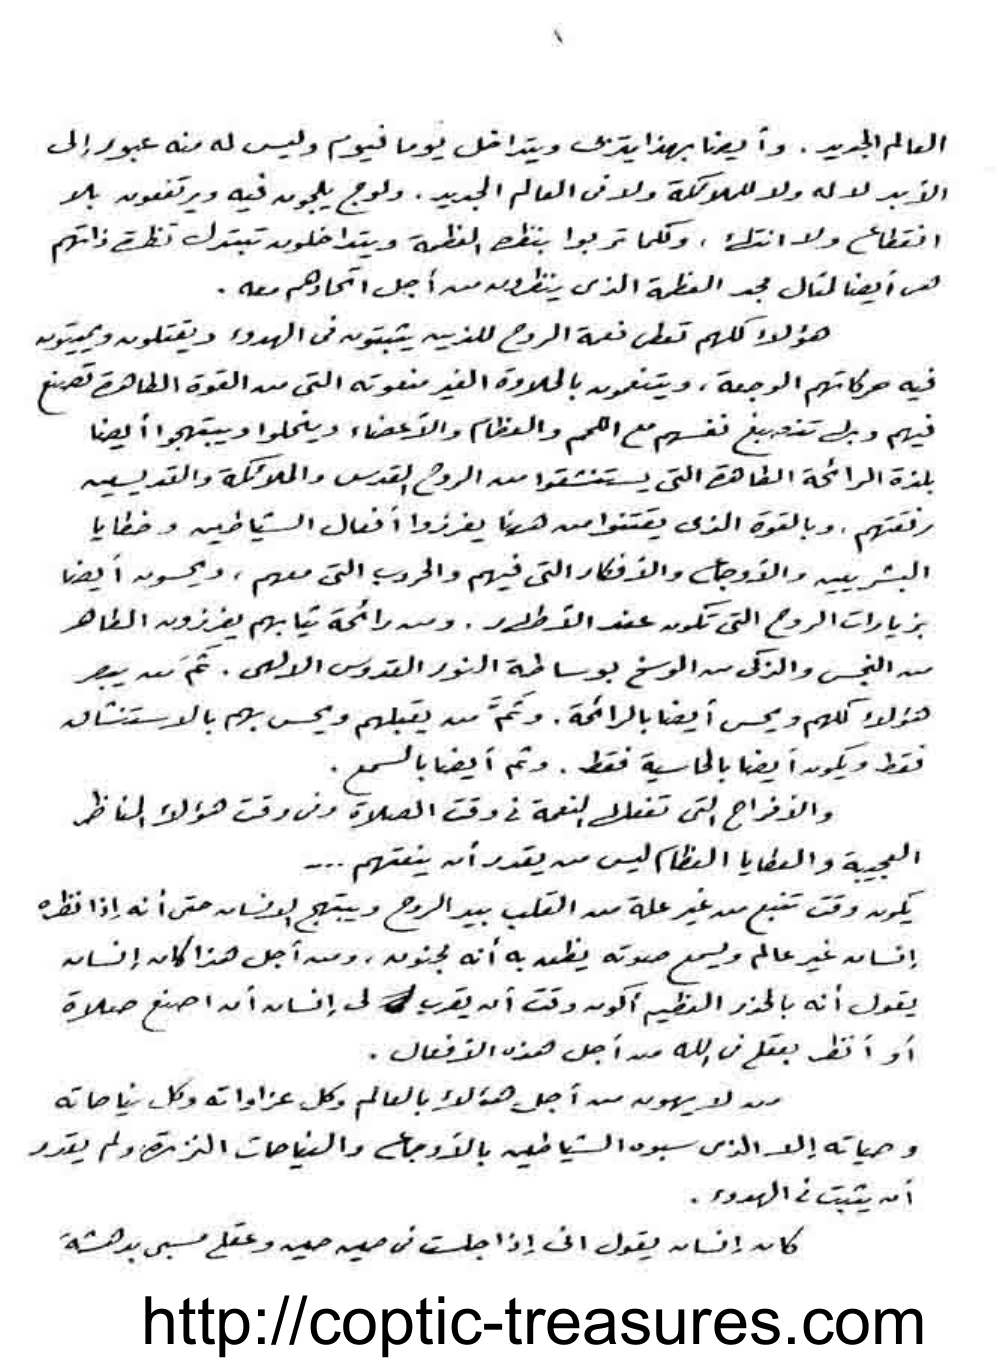 ١
العالم الجديد . وأيضا بهذا يتربى ويتداخل يوما فيوم وليس له منه عبور إلى
الأبد لا له ولا للملائكة ولا فى العالم الجديد . ولوج يلجون فيه ويرتفعون بلا
انقطاع ولا انتهاء ، وكلما تربوا بنظر العظمة ويتداخلون تبتدل نظرة ذاتهم
هى أيضا لمثال مجد العظمة الذى ينظرون من أجل اتحادهم معه .
هؤلاء كلهم تعطى نعمة الروح للذين يثبتون فى الهدوء ويقتلون ويميتون
فيه حركاتهم الوجعة ، ويتنعمون بالحلاوة الغير منعوته التى من القوة الطاهرة تصنع
فيهم وبل نفسهم مع اللحم والعظام والأعضاء وينحلوا ويبتهجوا أيضا
بلذة الرائحة الطاهرة التى يستنشقوا من الروح القدس والملائكة والقديسين
رفقتهم . وبالقوة الذى يقتنوا من ههنا يفرزوا أفعال الشياطين وخطايا
البشريين والأوجاع والأفكار التى فيهم والحروب التى معهم ، ويحسون أيضا
بزيارات الروح التى تكون عند الأطهار . ومن رائحة ثيابهم يفرزون الطاهر
من النجس والذكى من الوسخ بوساطة النور القدوس الالهى . ثَم من يبصر
هؤلاء كلهم ويحس أيضا بالرائحة . وثَمَّ من يقبلهم ويحس بهم بالاستنشاق
فقط ويكون أيضا بالحاسية فقط . وثم أيضا بالسمع .
والأفراح التى تفعل النعمة فى وقت الصلاة وفى وقت هؤلاء المناظر
العجيبة والعطايا العظام ليس من يقدر أن ينعتهم ....
يكون وقت تنبع من غير علة من القلب بيد الروح ويبتهج الإنسان حتى أنه إذا نظره
إنسان غير عالم ويسمع صوته يظن به أنه مجنون ، ومن أجل هذا كان إنسان
يقول أنه بالحذر العظيم أكون وقت أن يقرب لى إنسان أن اصنع صلاة
أو أنظر بعقلى فى الله من أجل هذه الأفعال .
من لا يهون من أجل هؤلاء بالعالم وكل عزاواته وكل نياحاته
وحياته إلا الذى سبوه الشياطين بالأوجاع والنياحات النزرة ولم يقدر
أن يثبت فى الهدوء .
كان إنسان يقول انى إذا جلست فى حين حين وعقلى مسبى بدهشة
http://coptic-treasures.com